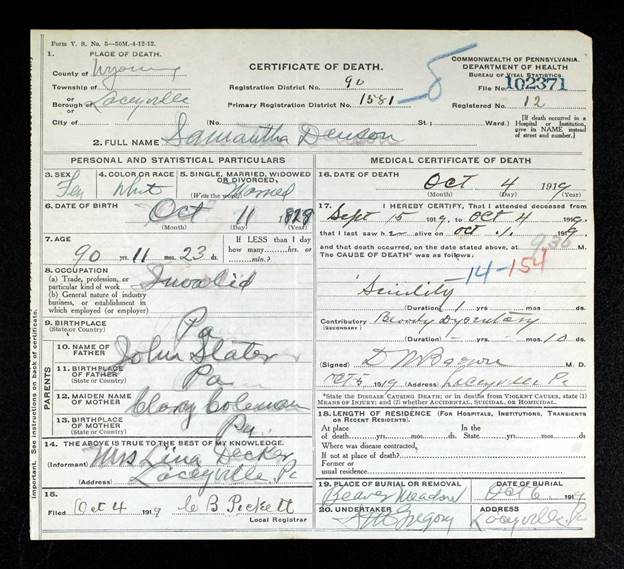 Form V. R. No. 5—50M.-4-12-12.
1. PLACE OF DEATH.
County of Wyoming
Township of
or
Borough of Laceyville
City of (No. St.; Ward.)
CERTIFICATE OF DEATH.
Registration District No. 90
Primary Registration District No. 1581
5
COMMONWEALTH OF PENNSYLVANIA.
DEPARTMENT OF HEALTH
BUREAU OF VITAL STATISTICS
File No. 102371
Registered No. 12
[If death occurred in a Hospital or Institution, give NAME instead of street and number.]
2. FULL NAME Samantha Denson
PERSONAL AND STATISTICAL PARTICULARS
3. SEX
Fe
4. COLOR OR RACE
Whit
5. SINGLE, MARRIED, WIDOWED
OR DIVORCED,
(Write the word)
6. DATE OF BIRTH
Oct 11 1828
(Month) (Day) (Year)
7. AGE
90 yrs. 11 mos. 23 ds.
If LESS than 1 day
how many hrs. or
min.?
8. OCCUPATION
(a) Trade, profession, or
particular kind of work Invalid
(b) General nature of industry
business, or establishment in
which employed (or employer)
9. BIRTHPLACE
(State or Country) Pa
PARENTS
10. NAME OF
FATHER John Slater
11. BIRTHPLACE
OF FATHER
(State or Country) Pa
12. MAIDEN NAME
OF MOTHER Clary Coleman
13. BIRTHPLACE
OF MOTHER
(State or Country) Pa.
14. THE ABOVE IS TRUE TO THE BEST OF MY KNOWLEDGE.
(Informant) Mrs Lina Decker
(Address) Laceyville, Pa
15.
Filed Oct 4 1919 C B Pickett
Local Registrar
MEDICAL CERTIFICATE OF DEATH
16. DATE OF DEATH
Oct 4 1919
(Month) (Day) (Year)
17. I HEREBY CERTIFY, That I attended deceased from
Sept 15 1919, to Oct 4 1919,
that I last saw h alive on Oct. 1. 1919,
and that death occurred, on the date stated above, at 930 M.
The CAUSE OF DEATH* was as follows:
14-154
Senility
(Duration) 1 yrs. mos. ds.
Contributory Bloody Dysentary
(SECONDARY)
(Duration) yrs. mos. 10 ds.
(Signed) M. D.
Oct 5, 1919 (Address) Laceyville Pa
*State the DISEASE CAUSING DEATH; or in deaths from VIOLENT CAUSES, state (1) MEANS OF INJURY; and (2) whether ACCIDENTAL, SUICIDAL, or HOMICIDAL.
18. LENGTH OF RESIDENCE (FOR HOSPITALS, INSTITUTIONS, TRANSIENTS
OR RECENT RESIDENTS).
At place In the
of death yrs. mos. ds. State yrs. mos. ds.
Where was disease contracted,
if not at place of death?
Former or
usual residence
19. PLACE OF BURIAL OR REMOVAL
Beaver Meadow
DATE OF BURIAL
Oct 6 1919
20. UNDERTAKER
Gregory
ADDRESS
Laceyville Pa
See instructions on back of certificate.